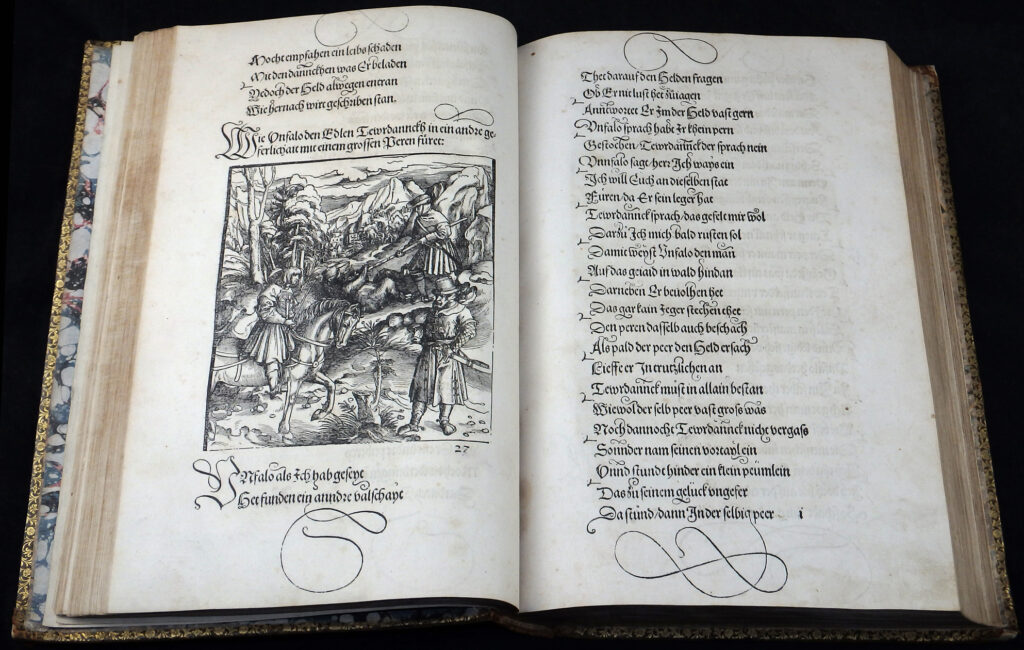 Mocht empfahen ein leibs schaden
Mit den dannckhen was Er beladen
Yedoch der Held alwegen entran
Wie hernach wirt geschriben stan.
Wie Vnfalo den Edlen Tewrdannckh in ein andre ge⸗
ferlichait mit einem grossen Peren füret:
27
VNfalo als Ich hab geseyt
Het funden ein anndre valschayt
Thet darauf den Helden fragen
Ob Er nit lust het zů iagen
Anntwortet Er zů im der Held vast gern
Vnfalo sprach habt Ir khein pern
Gestochen/Tewrdannck der sprach nein
Vnnfalo sagt/herr Ich ways ein
Ich will Euch an dieselben stat
Füren/da Er sein leger hat
Tewrdannck sprach/das gefelt mir wol
Darzů Ich mich bald rusten sol
Damit weyst Vnfalo den man
Auf das geiaid in wald hindan
Darneben Er beuolhen het
Das gar kain Jeger stechen thet
Den peren dasselb auch beschach
Als pald der peer den Held ersach
Lieff er In trutzlichen an
Tewrdannck must in allain bestan
Wiewol der selb peer vast gross was
Noch dannocht Tewrdannck nicht vergass
Sonnder nam seinen vortayl ein
Vnnd stundt hinder ein klein peumlein
Das zů seinem gelück vngefer
Da stůnd/dann In der selbig peer
i